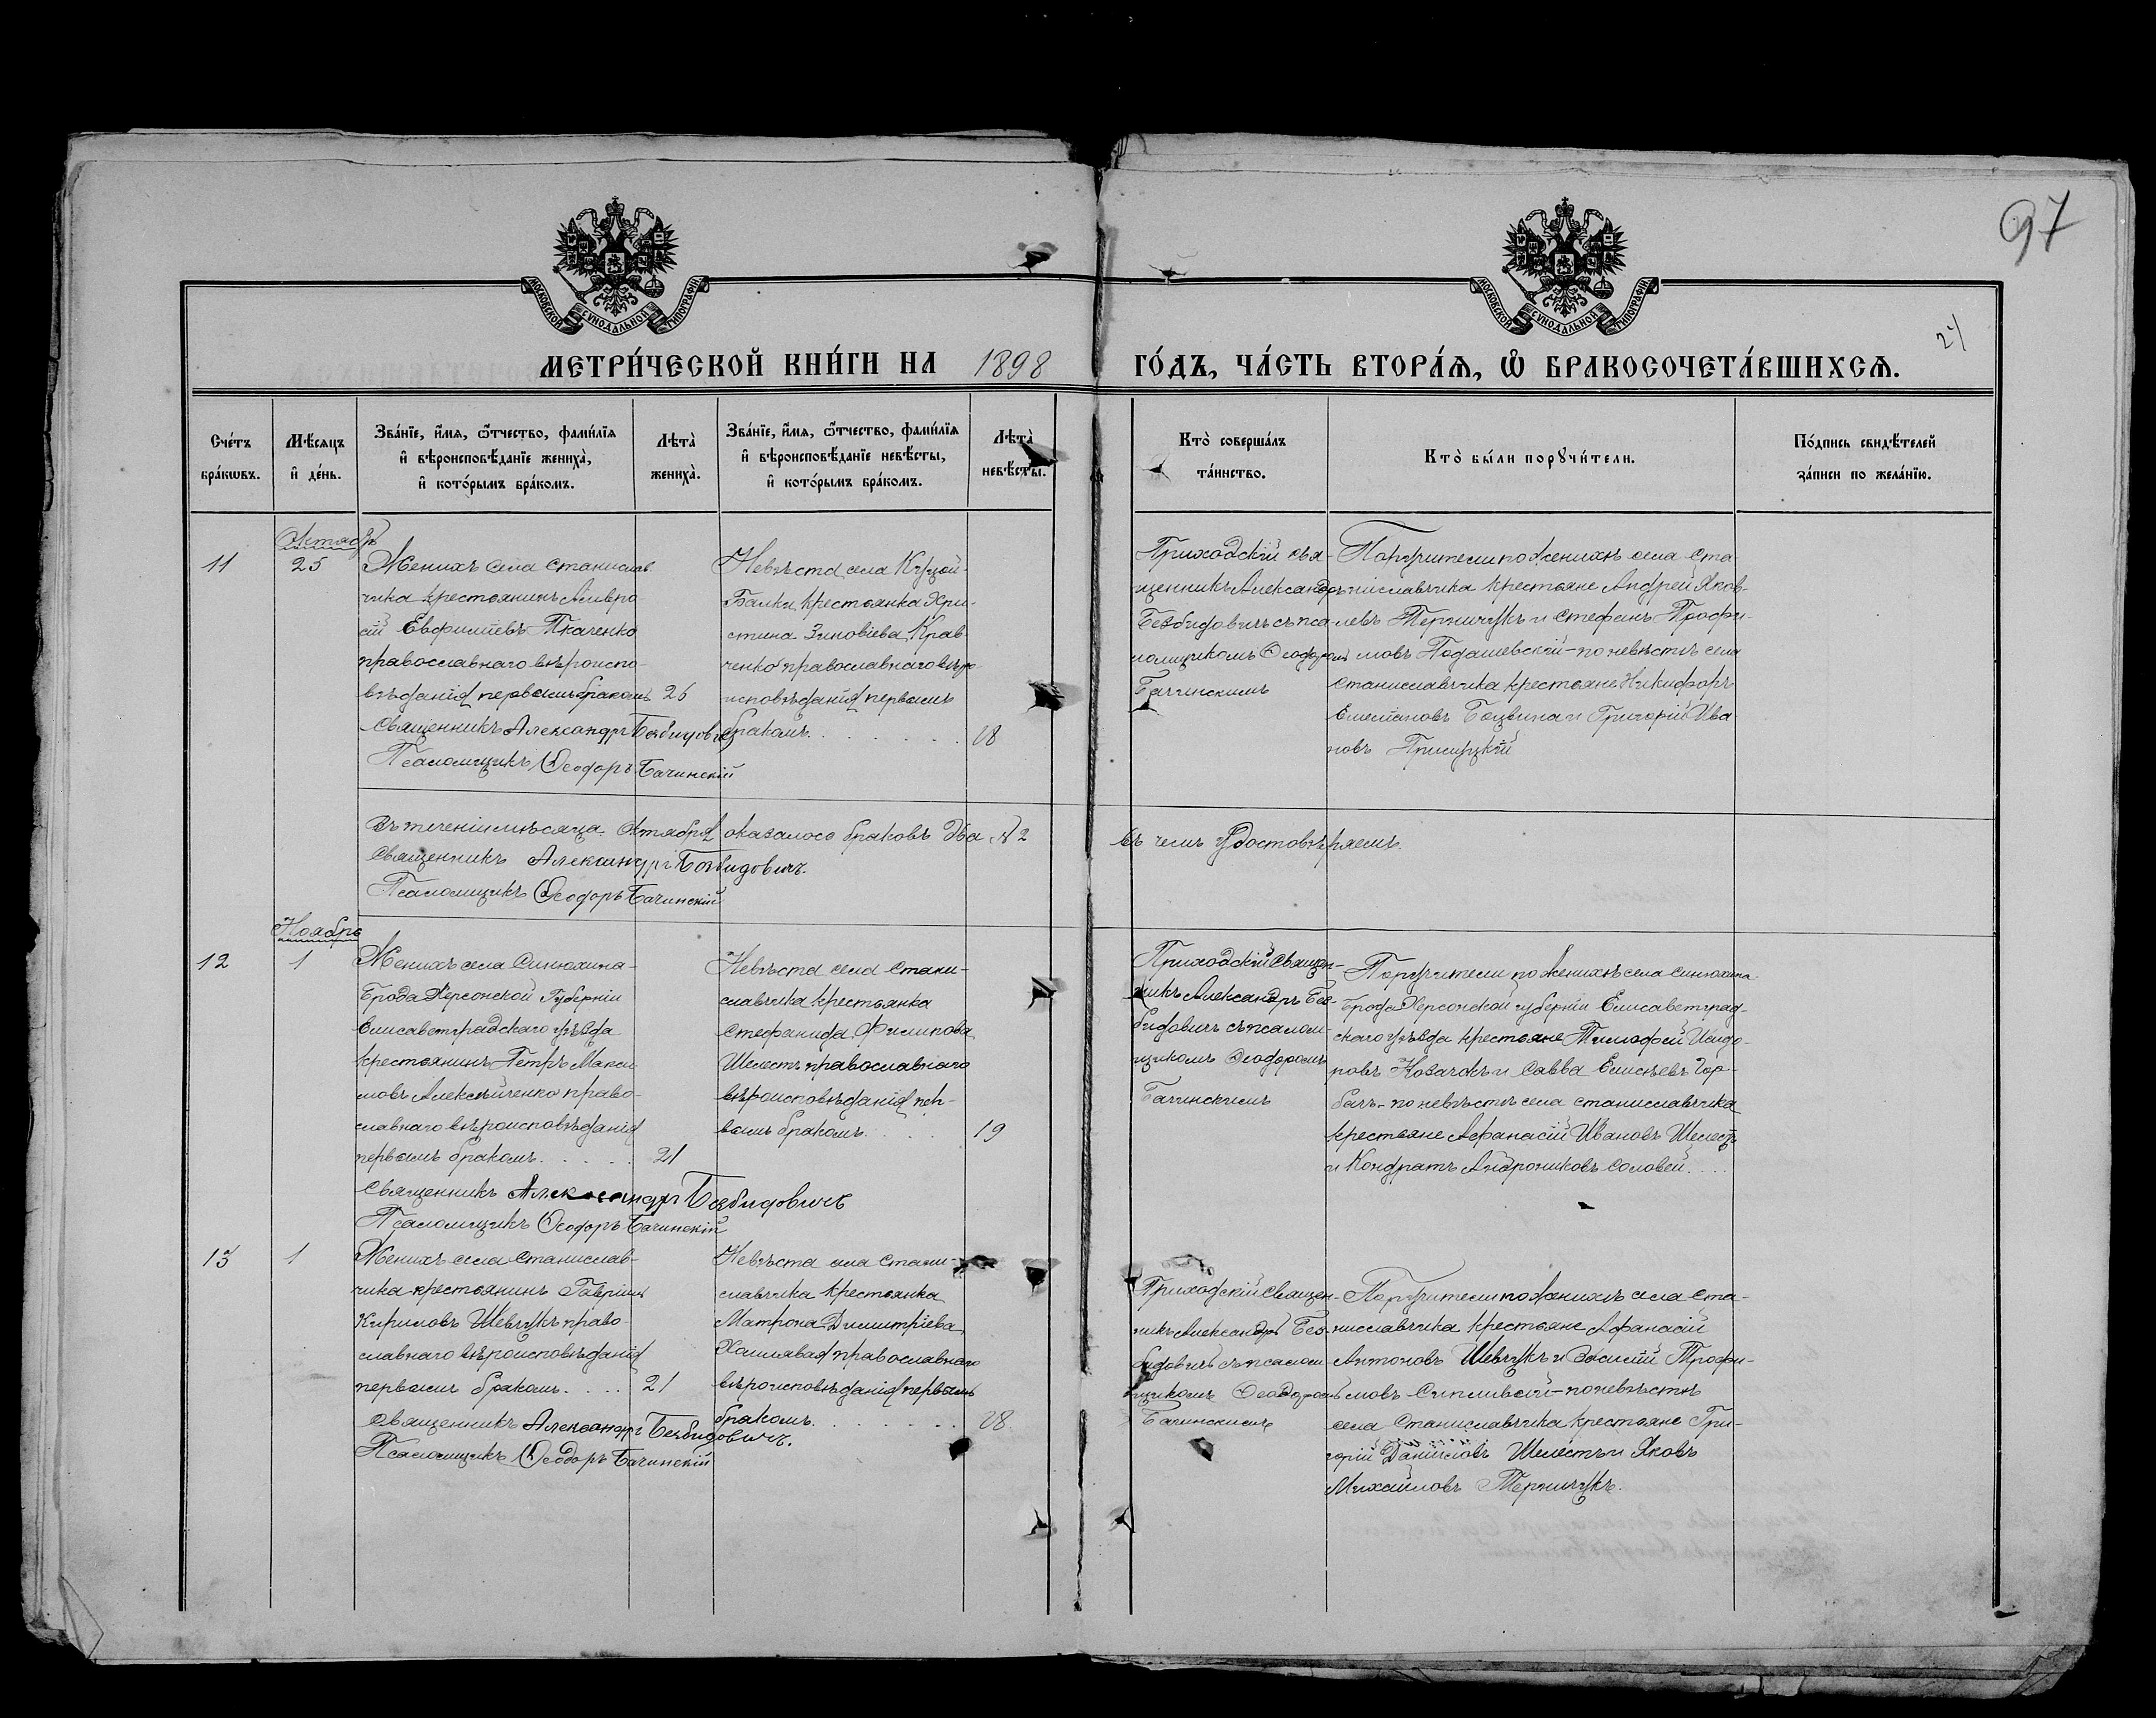 97
МОСКОВСКОЙ СѴНОДАЛЬНОЙ ТИПОГРАФІИ
МОСКОВСКОЙ СѴНОДАЛЬНОЙ ТИПОГРАФІИ
МЕТРИ́ЧЕСКОЙ КНИ́ГИ НА 1898 ГО́ДЪ, ЧА́СТЬ ВТОРА́Ѧ, Ѽ БРАКОСОЧЕТА́ВШИХСѦ.
Сче́тъ
бра́кωвъ.
Мѣ́сяцъ
и҆ де́нь.
Зва́нїе, и҆́мя, ѻ҆́тчество, фами́лїя
и҆ вѣроисповѣ́данїе жениха̀,
и҆ кото́рымъ бра́комъ.
Лѣта̀
жениха̀.
Зва́нїе, и҆́мя, ѻ҆́тчество, фами́лїя
и҆ вѣроисповѣ́данїе невѣ́сты,
и҆ кото́рымъ бра́комъ.
Лѣта̀
невѣ́сты.
Кто̀ соверша́лъ
та́инство.
Кто̀ бы́ли порꙋчи́тели.
По́дпись свидѣ́телей
за́писи по жела́нїю.
11
Октябрь
25
Женихъ села Станислав
чика крестьянинъ Амвро
сій Евфиміевъ Ткаченко
православнаго вѣроиспо-
вѣданія первымъ бракомъ 26
Священникъ Александръ Безбидовичъ
Псаломщикъ Ѳеодоръ Бачинскій
Невѣста села Куцой
Балки крестьянка Хри-
стина Зиновіева Крав
ченко православнаго вѣро
исповѣданія первымъ
бракомъ. 18
Приходскій свя-
щенникъ Александръ
Безбидовичъ съ пса
ломщикомъ Ѳеодоромъ
Бачинскимъ
Поручители по женихѣ села Ста-
ниславчика крестьяне Андрей Яков-
левъ Терничукъ и Стефанъ Трофи-
мовъ Подашевскій - по невѣстѣ села
Станиславчика крестьяне Никифоръ
Емеліановъ Боцвина и Григорій Ива
новъ
Въ теченіи мѣсяца Октября оказалось браковъ два № 2 въ чемъ удостовѣряемъ
Священникъ Александръ Безбидовичъ.
Псаломщикъ Ѳеодоръ Бачинскій
Ноябрь
12
1
Женихъ села Синюхина-
Брода Херсонской Губерніи
Елисаветградскаго уѣзда
крестьянинъ Петръ Макси
мовъ Алексѣйченко право-
славнаго вѣроисповѣданія
первымъ бракомъ. 21
Священникъ Александръ Безбидовичъ
Псаломщикъ Ѳеодоръ Бачинскій
Невѣста села Стани-
славчика крестьянка
Стефанида Филипова
Шелестъ православнаго
вѣроисповѣданія пер-
вымъ бракомъ. 19
Приходскій Священ-
никъ Александръ Без-
бидовичъ съ псалом-
щикомъ Ѳеодоромъ
Бачинскимъ
Поручители по женихѣ села Синюхина-
Брода Херсонской губерніи Елисаветград-
скаго уѣзда крестьяне Тимофей Исидо-
ровъ Козачокъ и Савва Елисѣевъ Гор-
бачъ - по невѣстѣ села Станиславчика
крестьяне Афанасій Ивановъ Шелестъ
и Кондратъ Андрониковъ Соловей
13
1
Женихъ села Станислав-
чика крестьянинъ Гавріилъ
Кириловъ Шевчукъ право-
славнаго вѣроисповѣданія
первымъ бракомъ. 21
Священникъ Александръ Безбидовичъ.
Псаломщикъ Ѳеодоръ Бачинскій
Невѣста села Стани-
славчика крестьянка
Матрона Димитріева
православнаго
вѣроисповѣданія первымъ
бракомъ. 18.
Приходскій Священ-
никъ Александръ Без-
бидовичъ съ псалом-
щикомъ Ѳеодоромъ
Бачинскимъ
Поручители по женихѣ села Ста-
ниславчика крестьяне Афанасій
Антоновъ Шевчукъ и Трофи-
мовъ - по невѣстѣ
села Станиславчика крестьяне Гри-
горій Даниловъ Шелестъ и Яковъ
Михайловъ Терничукъ.